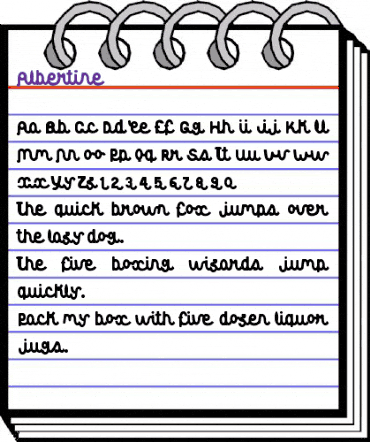 Albertine
Aa Bb Cc Dd Ee Ff Gg Hh Ii Jj Kk Ll
Mm Nn Oo Pp Qq Rr Ss Tt Uu Vv Ww
Xx Yy Zz 1 2 3 4 5 6 7 8 9 0
The quick brown fox jumps over
the lazy dog.
The five boxing wizards jump
quickly.
Pack my box with five dozen liquor
jugs.